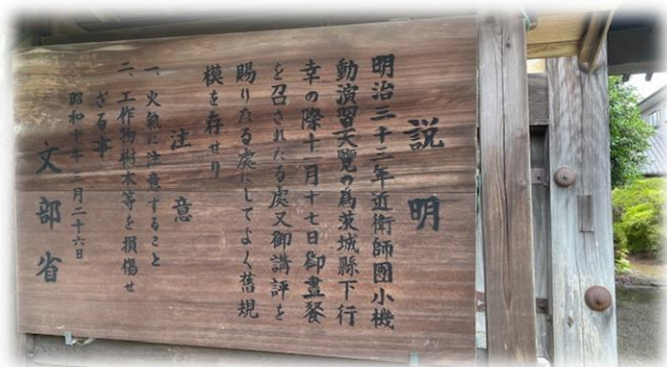 説明
明治三十二年近衛師團小機
動演習天覽の為茨城縣下行
幸の際十一月十七日御晝餐
を召されたる處又御講評を
賜りたる處にしてよく舊規
模を存せり
注意
一、火氣に注意すること
二、工作物樹木等を損傷せ
ざる事
昭和十年 月二十六日
文部省